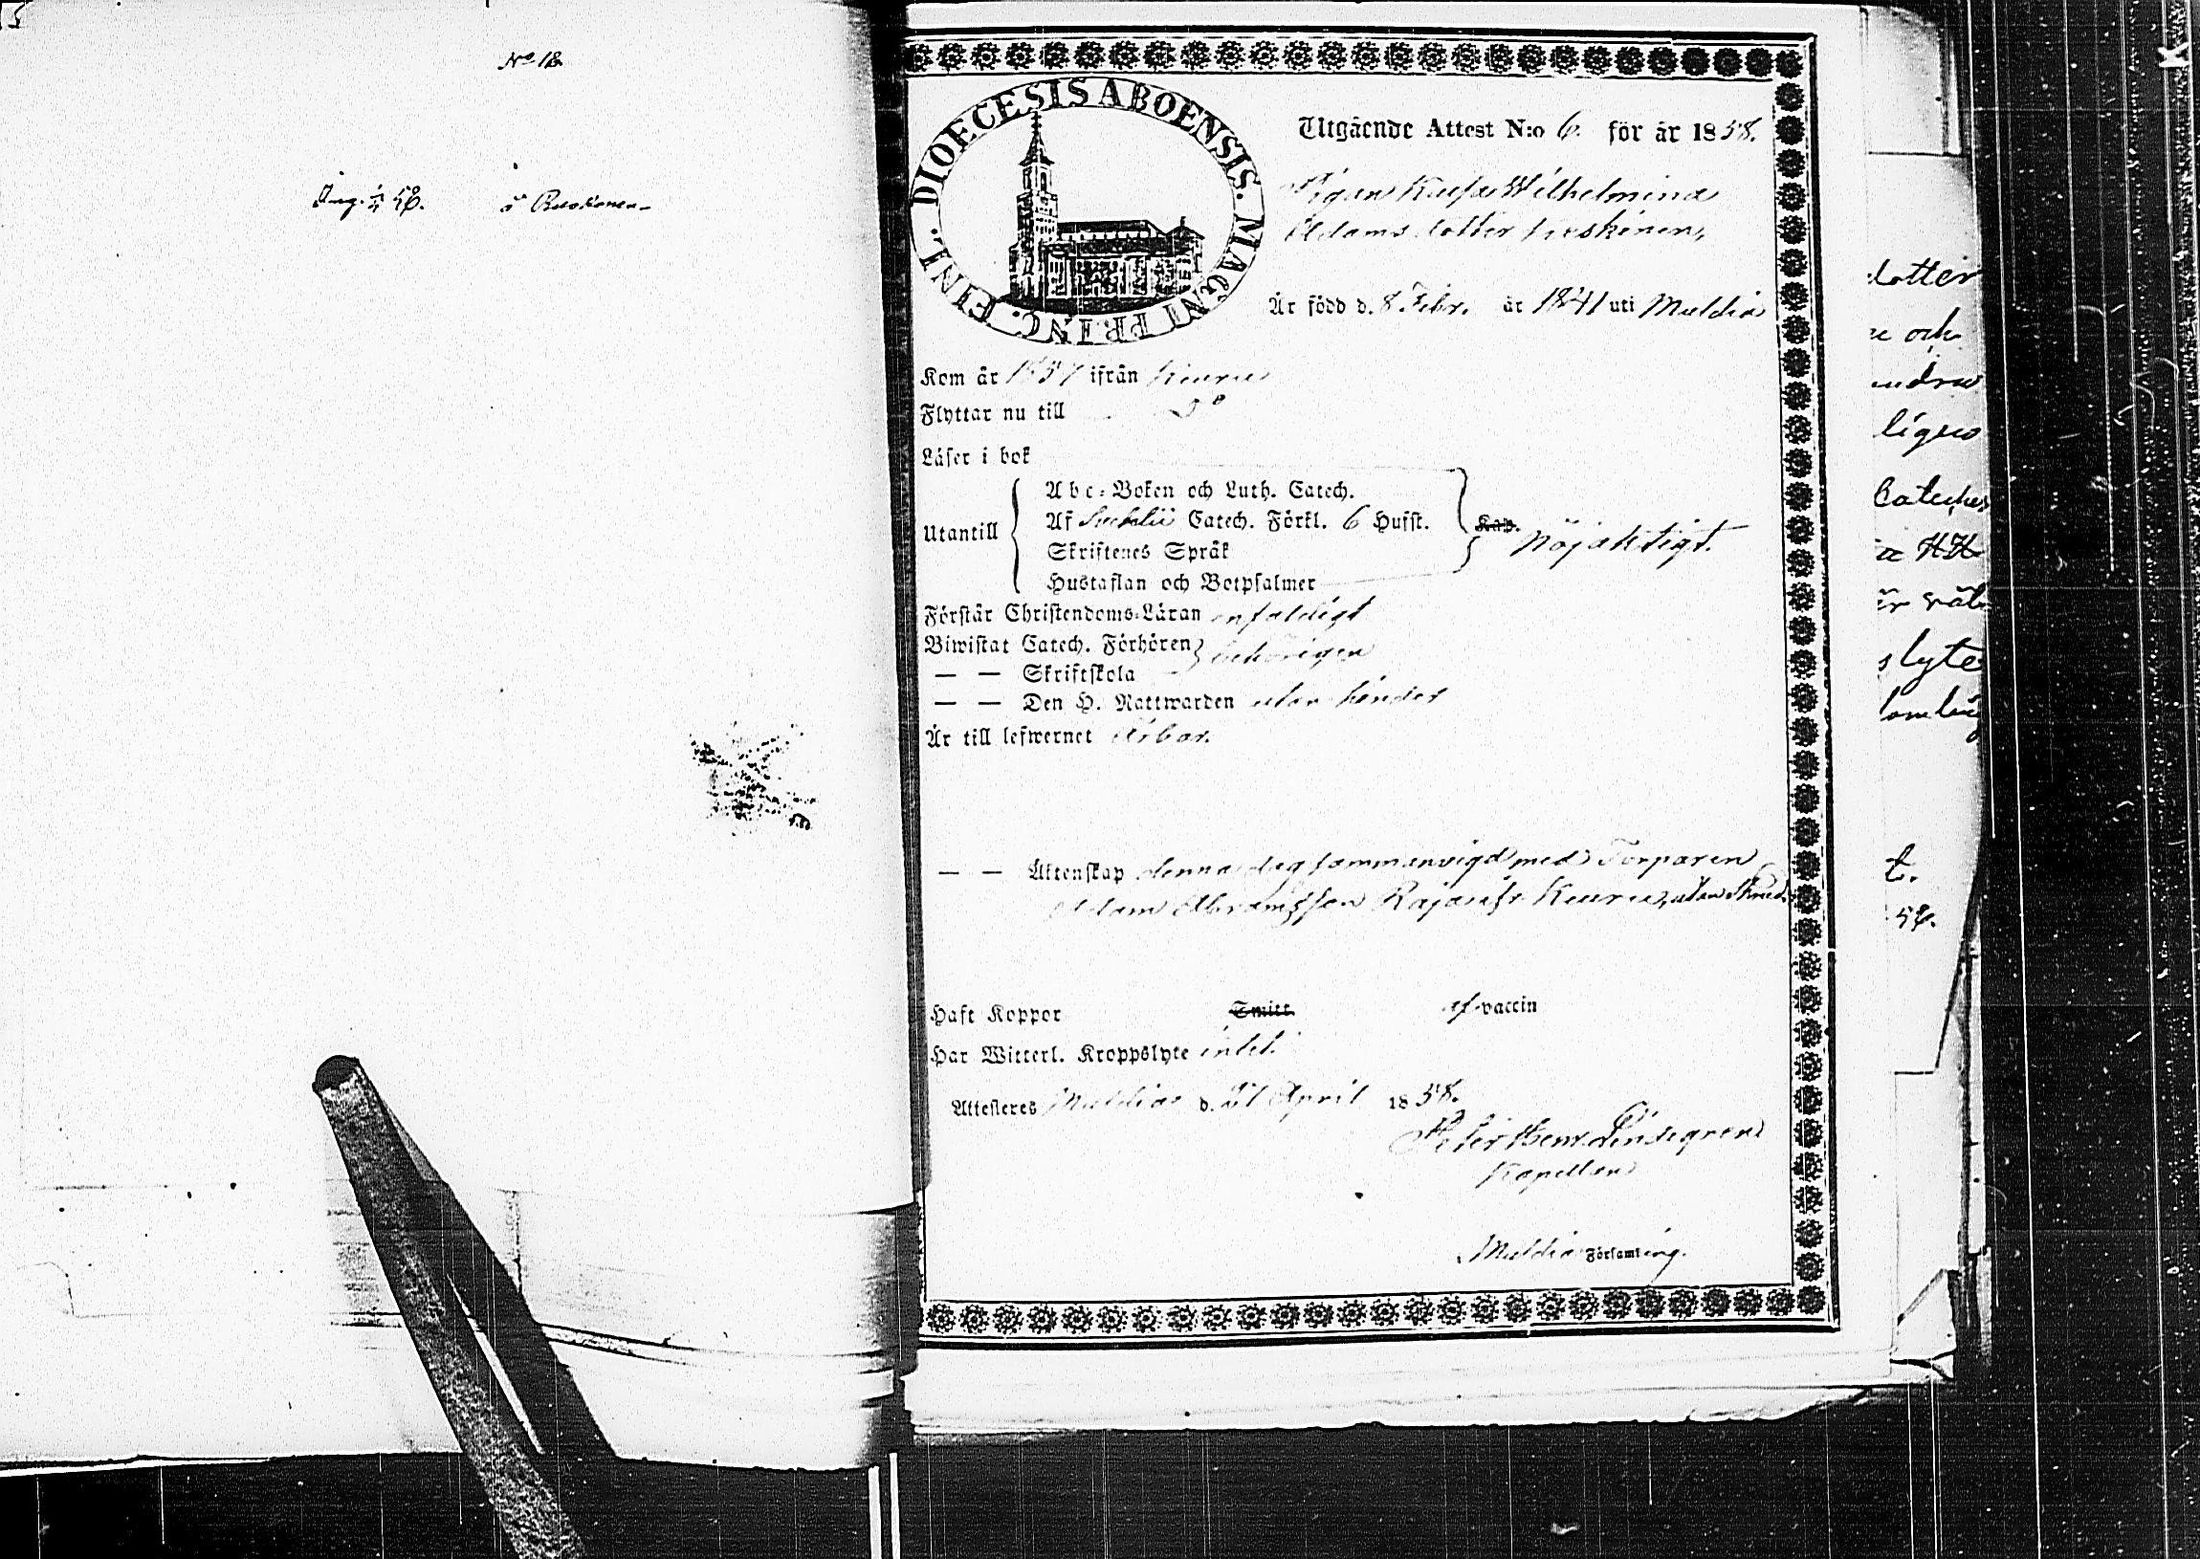 No 18.
Ing. 58.
DIOECESIS ABOENSIS. MAGNI PRINC. FINL.
Utgående Attest N:o 6. för år 1858.
Pigan Kaisa Wilhelmina
Adams dotter
Är född d. 8 Febr. år 1841 uti Muldia
Kom år 1857 ifrån Keuru
Flyttar nu till Do
Läser i bok
Utantill
Abc-Boken och Luth. Catech.
Af Svebelii Catech. Förkl. 6 Hufst.
Skriftenes Språk
Hustaflan och Botpsalmer
Kap. nöjaktigt.
Förstår Christendoms-Läran enfaldigt
Biwistat Catech. Förhören behörigen
— — Skriftskola
— — Den H. Nattwarden utan hinder
Är till lefwernet Ärbar.
— — Äktenskap denna dag sammanvigd med Torparen
Adam Abramsson Rajait fr. Keuru, utan
Haft Koppor Smitt. af vaccin
Har Witterl. Kroppslyte intet.
Attesteras Muldia d. 21 April 1858.
Peter Henr. Lindegren
Kapellan
Muldia Församling.
dotter
och
andra
Cateches
slyte
t.
58.
K